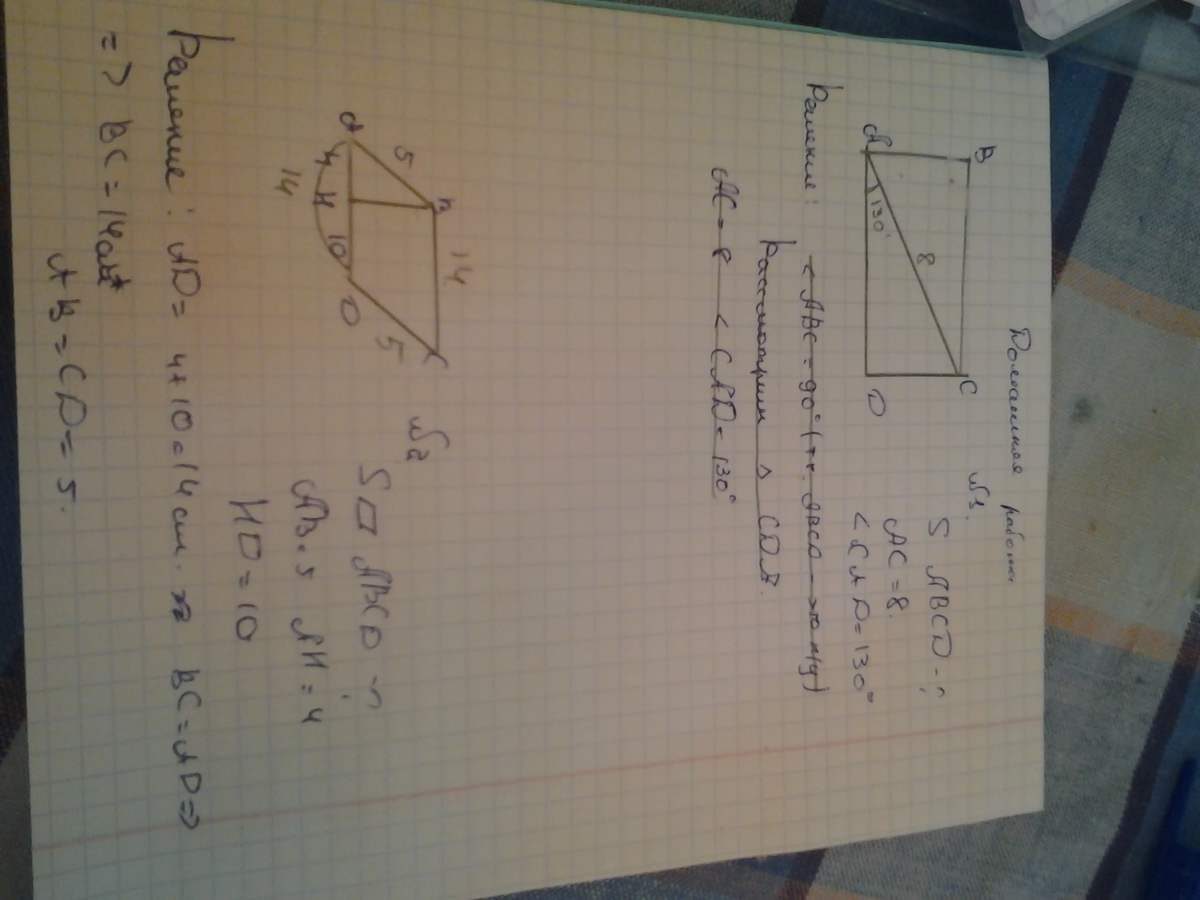 Домашняя работа
№1.
B
C
A
D
130°
8
S ABCD - ?
AC = 8.
< CAD = 130°
Решение: < ABC = 90° (т.к. ABCD - )
Рассмотрим △ CDA.
AC = 8 < CAD = 130°
№2
B
C
A
D
H
5
14
4
10
5
14
S▱ ABCD - ?
AB = 5 AH = 4
HD = 10
Решение: AD = 4+10=14 см. BC = AD =>
=> BC = 14см
AB = CD = 5.